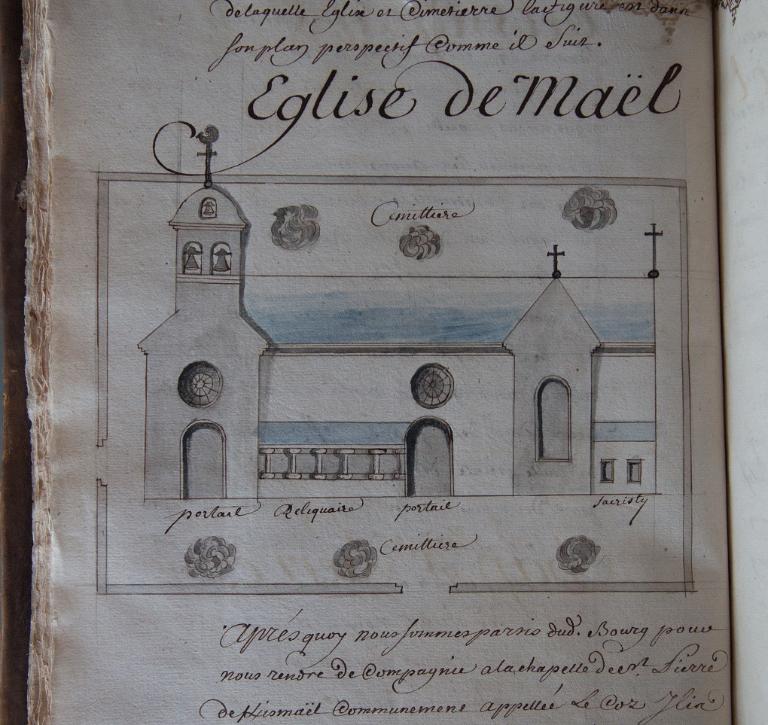 de laquelle Eglise et Cimetierre la figure est dans
son plan perspectif Comme il Suit.
Eglise de Maël
Cemittiere
portail Reliquaire portail sacristy
Cemittiere
Aprés quoy nous sommes partis dud. Bourg pour
nous rendre de Compagnie a la chapelle de St. Pierre
de Kismaël Communement appellée Le Coz Ilis